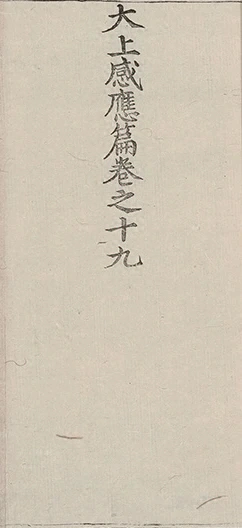 大上感應篇卷之十九